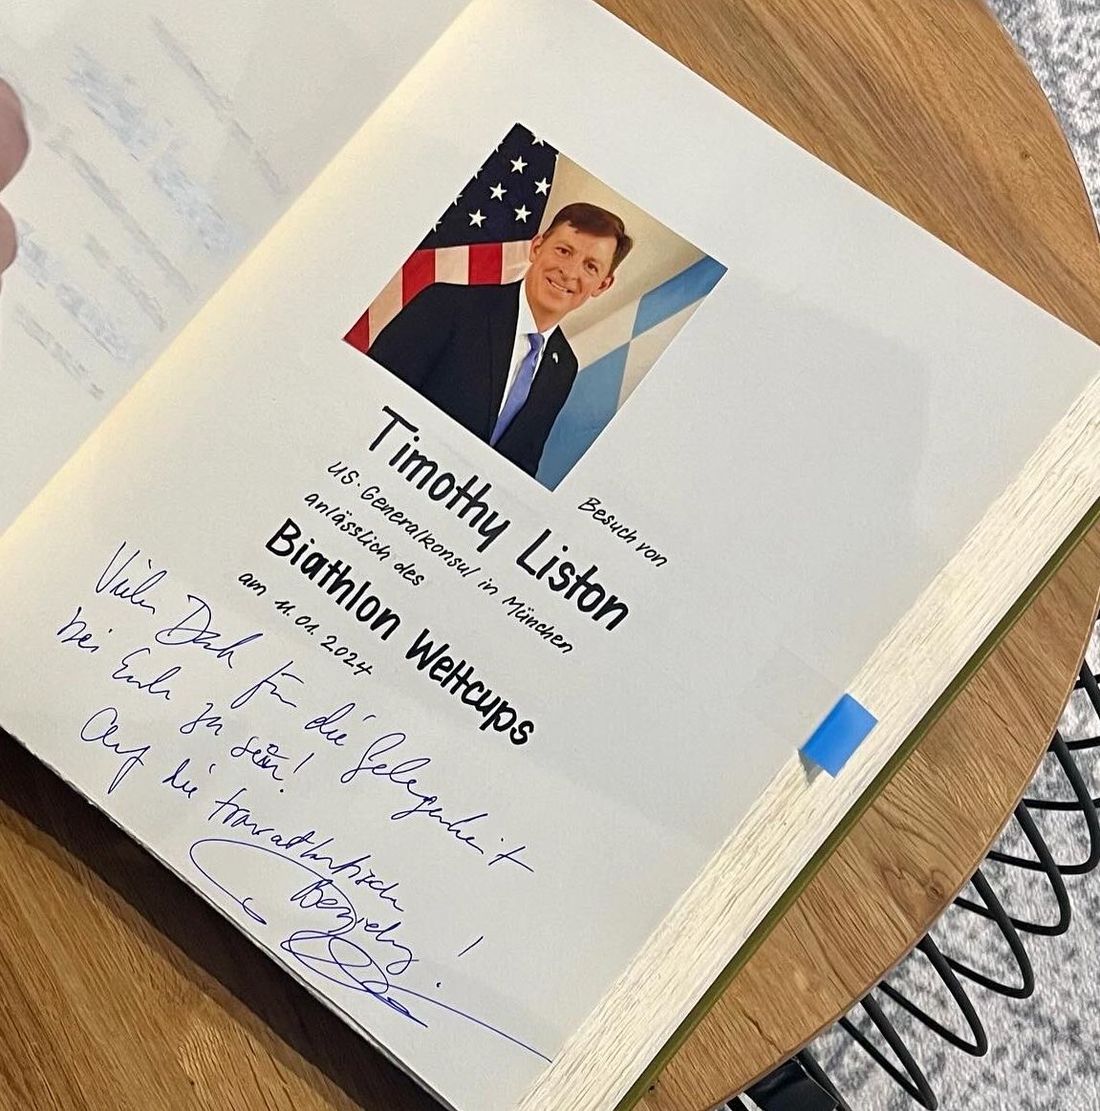 Besuch von
Timothy Liston
US. Generalkonsul in München
anlässlich des
Biathlon Weltcups
am 11.01.2024
Vielen Dank für die Gelegenheit
bei Euch zu sein!
Auf die transatlantische
Beziehung!